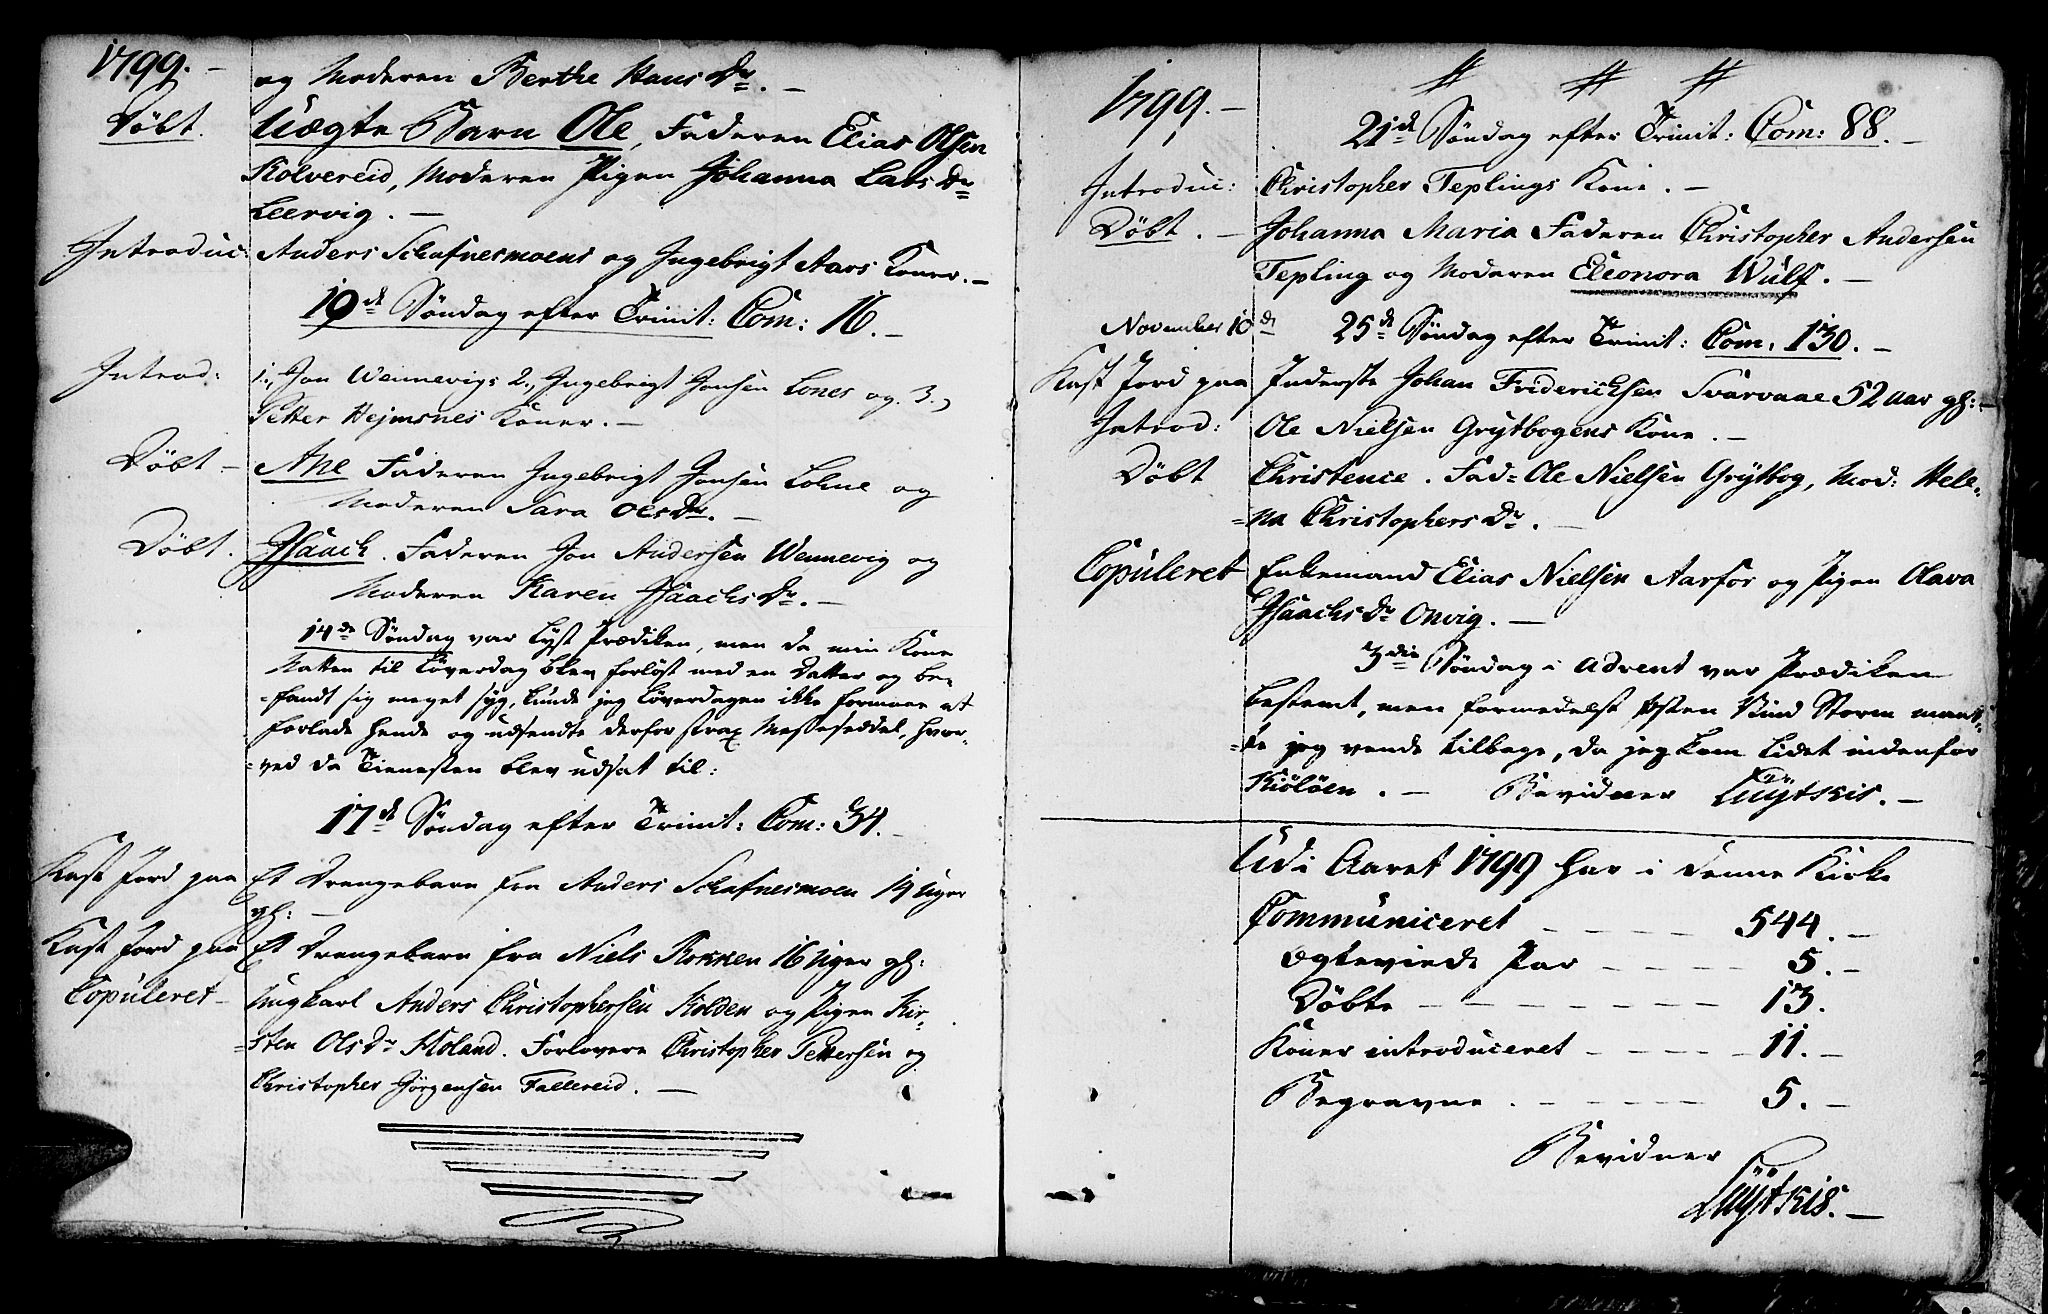 1799.-
og Moderen Berthe Hans Dr. -
Döbt. Uægte Barn Ole, Faderen Elias Olsen
Kolvereid, Moderen Pigen Johanna Lars Dr
Leervig. -
Introduc: Anders Schafnesmoens og Ingebrigt Aars Koner. -
19de Söndag efter Trinit: Com: 16. -
Introd: 1., Jon Wennevigs 2., Ingebrigt Jonsen Lones og 3.,
Petter Hejmsnes Koner. -
Döbt - Ane Faderen Ingebrigt Jonsen Lohne og
Moderen Sara Ols Dr. -
Döbt. Isaach. Faderen Jon Andersen Wennevig og
Moderen Karen Isaachs Dr. -
14de Söndag var lyst Prædiken, men da min Kone
Natten til Löverdag blev forlöst med en Datter og be-
-fandt sig meget syg, kunde jeg Löverdagen ikke formaae at
forlade hende og udsendte derfor strax Messeseddel, hvor-
-ved da Tienesten blev udsat til:
17de Söndag efter Trinit: Com: 34. -
Kast Jord paa Et Drengebarn fra Anders Schafnesmoen 14 Uger
gl: -
Kast Jord paa Et Drengebarn fra Niels Rokken 16 Uger gl:
Copuleret - Ungkarl Anders Christophersen Kolden og Pigen Kir-
-sten Ols Dr Moland. Forlovere Christopher Pettersen og
Christopher Jörgensen Fallereid. -
1799. -
21de Söndag efter Trinit: Com: 88. -
Introduc: Christopher Teplings Kone. -
Döbt. - Johanna Maria Faderen Christopher Andersen
Tepling og Moderen Eleonora Wulf. -
November 10de 25de Söndag efter Trinit: Com. 130. -
Kast Jord paa Inderste Johan Friderichsen Svarvaae 52 aar gl: -
Introd: Ole Nielsen Grytbogens Kone. -
Döbt Christence. Fad= Ole Nielsen Grytbog, Mod: Hele-
=na Christophers Dr. -
Copuleret Enkemand Elias Nielsen Aarfor og Pigen Olava
Isaachs Dr Onvig. -
3die Söndag i Advent var Prædiken
bestemt, men formedelst Østen Vind Storm maat-
-te jeg vende tilbage, da jeg kom lidet indenfor
Kiölöen. - Bevidner Luytkis. -
Udi Aaret 1799 har i denne Kirke
Communiceret - - - - - 544. -
Ægteviede Par - - - - 5. -
Döbte - - - - - - - 13.
Koner introduceret - - - - 11. -
Begravne . - - - - - 5. -
Bevidner
Luytkis. -